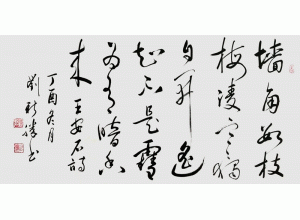 墙角数枝
梅凌寒独
自开遥
知不是雪
为有暗香
来 王安石詩
丁酉冬月
劉书